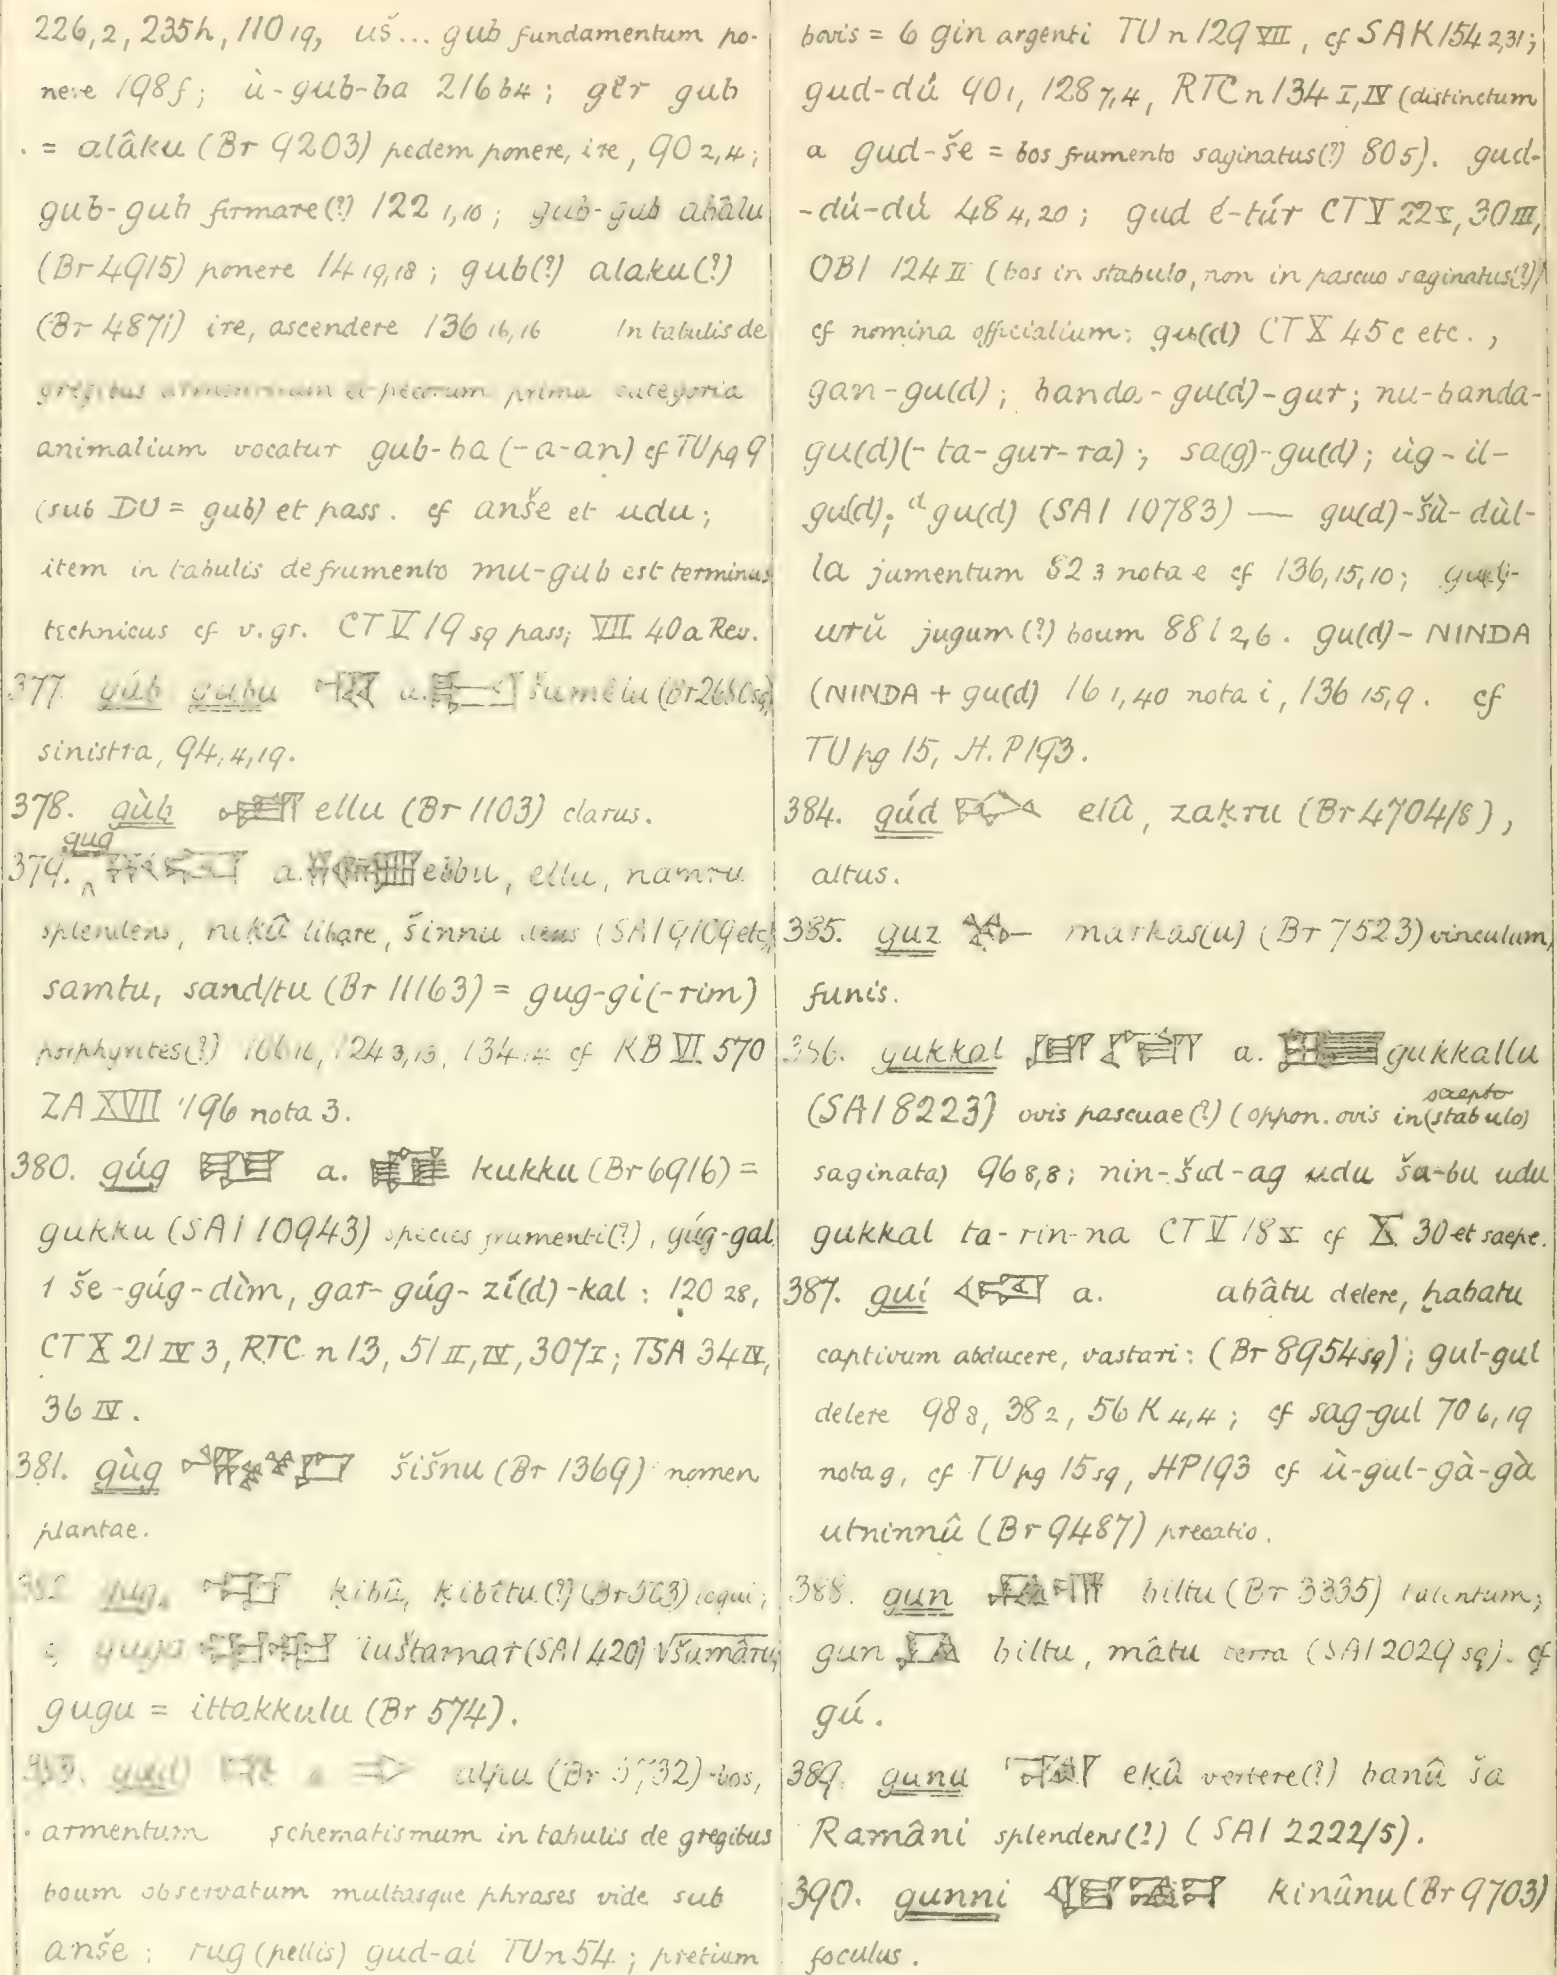 226,2, 235h, 110 19, uš... gub fundamentum po-
nere 198f; ù-gub-ba 216 b4; gĕr gub
= alâku (Br 9203) pedem ponere, ire, 90 2,4;
gub-gub firmare(?) 122 1,10; gub-gub abâlu
(Br 4915) ponere 14 19,18; gub(?) alaku(?)
(Br 4871) ire, ascendere 136 16,16 In tabulis de
gregibus armentorum et pecorum prima categoria
animalium vocatur gub-ba (-a-an) cf TU pg 9
(sub DU = gub) et pass. cf anše et udu;
item in tabulis de frumento mu-gub est terminus
technicus cf v.gr. CT V 19 sq pass; VII 40a Rev.
377. gúb gubu a. šumêlu (Br 2680 sq)
sinistra, 94,4,19.
378. gùb ellu (Br 1103) clarus.
379. gug a. ebbu, ellu, namru
splendens, niḳû libare, šinnu dens (SAI 9109 etc)
samtu, sand/tu (Br 11163) = gug-gi(-rim)
porphyrites(?) 106 16, 124 3,13, 134 cf KB VI 570
ZA XVII 196 nota 3.
380. gúg a. kukku (Br 6916) =
gukku (SAI 10943) species frumenti(?), gúg-gal
1 še-gúg-dìm, gar-gúg-zí(d)-kal: 120 28,
CT X 21 IV 3, RTC n 13, 51 II, IV, 307 I; TSA 34 IV,
36 IV.
381. gùg šišnu (Br 1369) nomen
plantae.
382. gug, ḳibû, ḳibîtu(?) (Br 563) loqui;
guga luštamar (SAI 420) √šumâru;
gugu = ittakkulu (Br 574).
383. gu(d) a alpu (Br 5732) bos,
armentum schematismum in tabulis de gregibus
boum observatum multasque phrases vide sub
anše: rug (pellis) gud-ai TU n 54; pretium
bovis = 6 gin argenti TU n 129 VII, cf SAK 154 2,31;
gud-dú 40 1, 128 7,4, RTC n 134 I, IV (distinctum
a gud-še = bos frumento saginatus(?) 80 5). gud-
-dú-dú 48 4,20; gud é-túr CT V 22 X, 30 III,
OBI 124 II (bos in stabulo, non in pascuo saginatus(?))
cf nomina officialium: gu(d) CT X 45 c etc.,
gan-gu(d); banda-gu(d)-gur; nu-banda-
gu(d)(-ta-gur-ra); sa(g)-gu(d); ùg-il-
gu(d); d gu(d) (SAI 10783) — gu(d)-šù-dùl-
la jumentum 82 3 nota e cf 136,15,10; gu(d)-
urŭ jugum(?) boum 88 l 2,6. gu(d)-NINDA
(NINDA + gu(d) 16 1,40 nota i, 136 15,9. cf
TU pg 15, H.P 193.
384. gúd elû, zaḳru (Br 4704/8),
altus.
385. guz markas(u) (Br 7523) vinculum,
funis.
386. gukkal a. gukkallu
(SAI 8223) ovis pascuae(?) (oppon. ovis in saepto (stabulo)
saginata) 96 8,8; nin-šid-ag udu ša-bu udu
gukkal ta-rin-na CT V 18 X cf X 30 et saepe.
387. gul a. abâtu delere, ḫabatu
captivum abducere, vastari: (Br 8954 sq); gul-gul
delere 98 8, 38 2, 56 K 4,4; cf sag-gul 70 6,19
nota g, cf TU pg 15 sq, HP 193 cf ù-gul-gà-gà
utninnû (Br 9487) precatio.
388. gun biltu (Br 3335) talentum;
gun biltu, mâtu terra (SAI 2029 sq). cf
gú.
389. gunu eḳû vertere(?) banû ša
Ramâni splendens(?) (SAI 2222/5).
390. gunni kinûnu (Br 9703)
foculus.